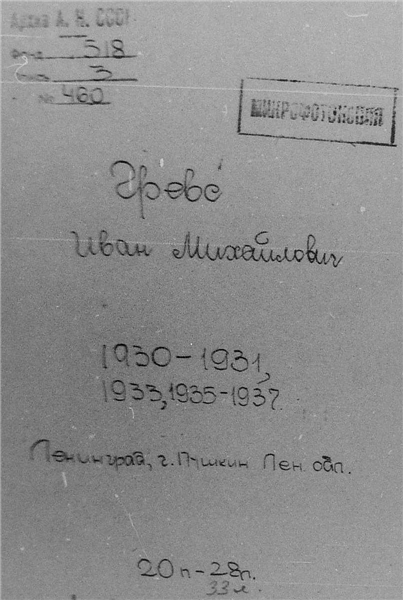 Архив А. Н. СССР
Фонд 518
Опись 3
№ 460
МИКРОФОТОКОПИЯ
Гревс
Иван Михайлович
1930-1931,
1933, 1935-1937.
Ленинград, г. Пушкин Лен. обл.
20п-28п.
33л.